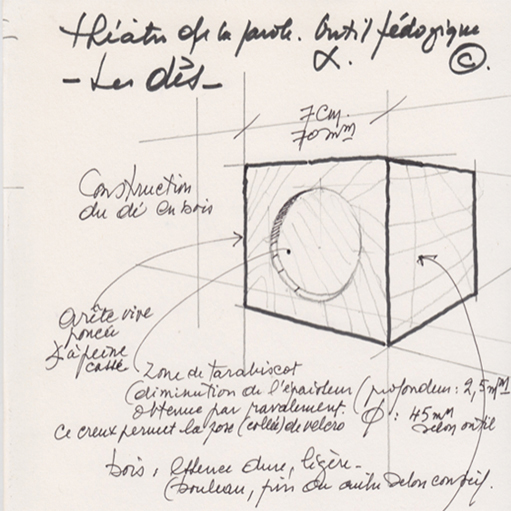 théâtre de la parole. Outil pédagogique
α. ©.
- Les dés -
7cm.
70mm
Construction
du dé en bois
arête vive
poncée
à peine
cassée
Zone de tarabiscot
(diminution de l'épaisseur (profondeur : 2,5mm
obtenue par ravalement. Φ : 45mm
Ce creux permet la pose (collée) de velcro selon outil
bois, essence dure, légère -
(bouleau, pin ou autre selon conseil.